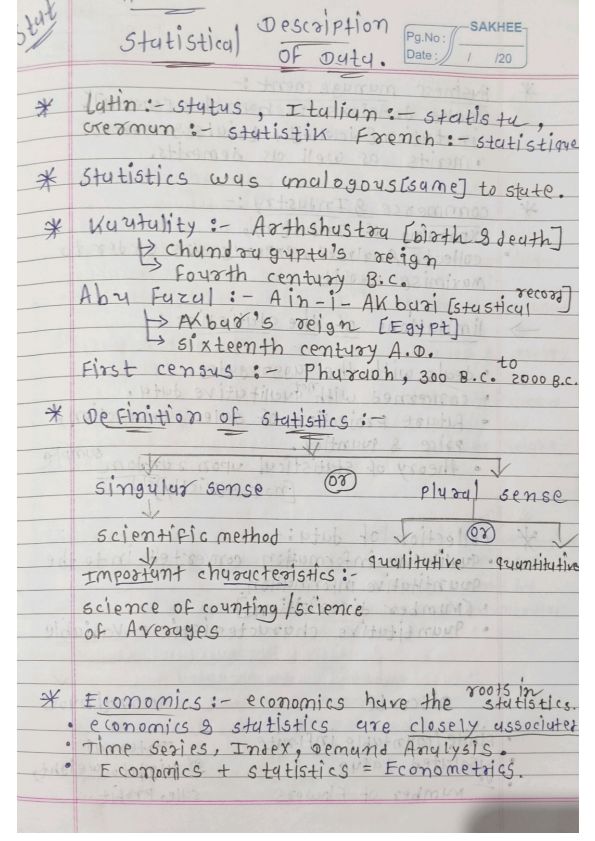 Stat
Statistical Description of Data.
SAKHEE
Pg.No:
Date: / /20
* Latin :- status, Italian :- statista,
German :- statistik French :- statistique
* Statistics was analogous [same] to state.
* Kautality :- Arthshastra [birth & death]
↳ chandra gupta's reign
↳ Fourth century B.C.
Abu Fazal :- Ain-i-Akbari [stastical record]
↳ Akbar's reign [Egypt]
↳ sixteenth century A.D.
First census :- Pharaoh, 300 B.C. to 2000 B.C.
* Definition of statistics :-
singular sense or plural sense
scientific method or
qualitative quantitative
Important characteristics :-
science of counting/science
of Averages
* Economics :- economics have the roots in statistics.
• economics & statistics are closely associates
• Time series, Index, Demand Analysis.
• Economics + statistics = Econometrics.